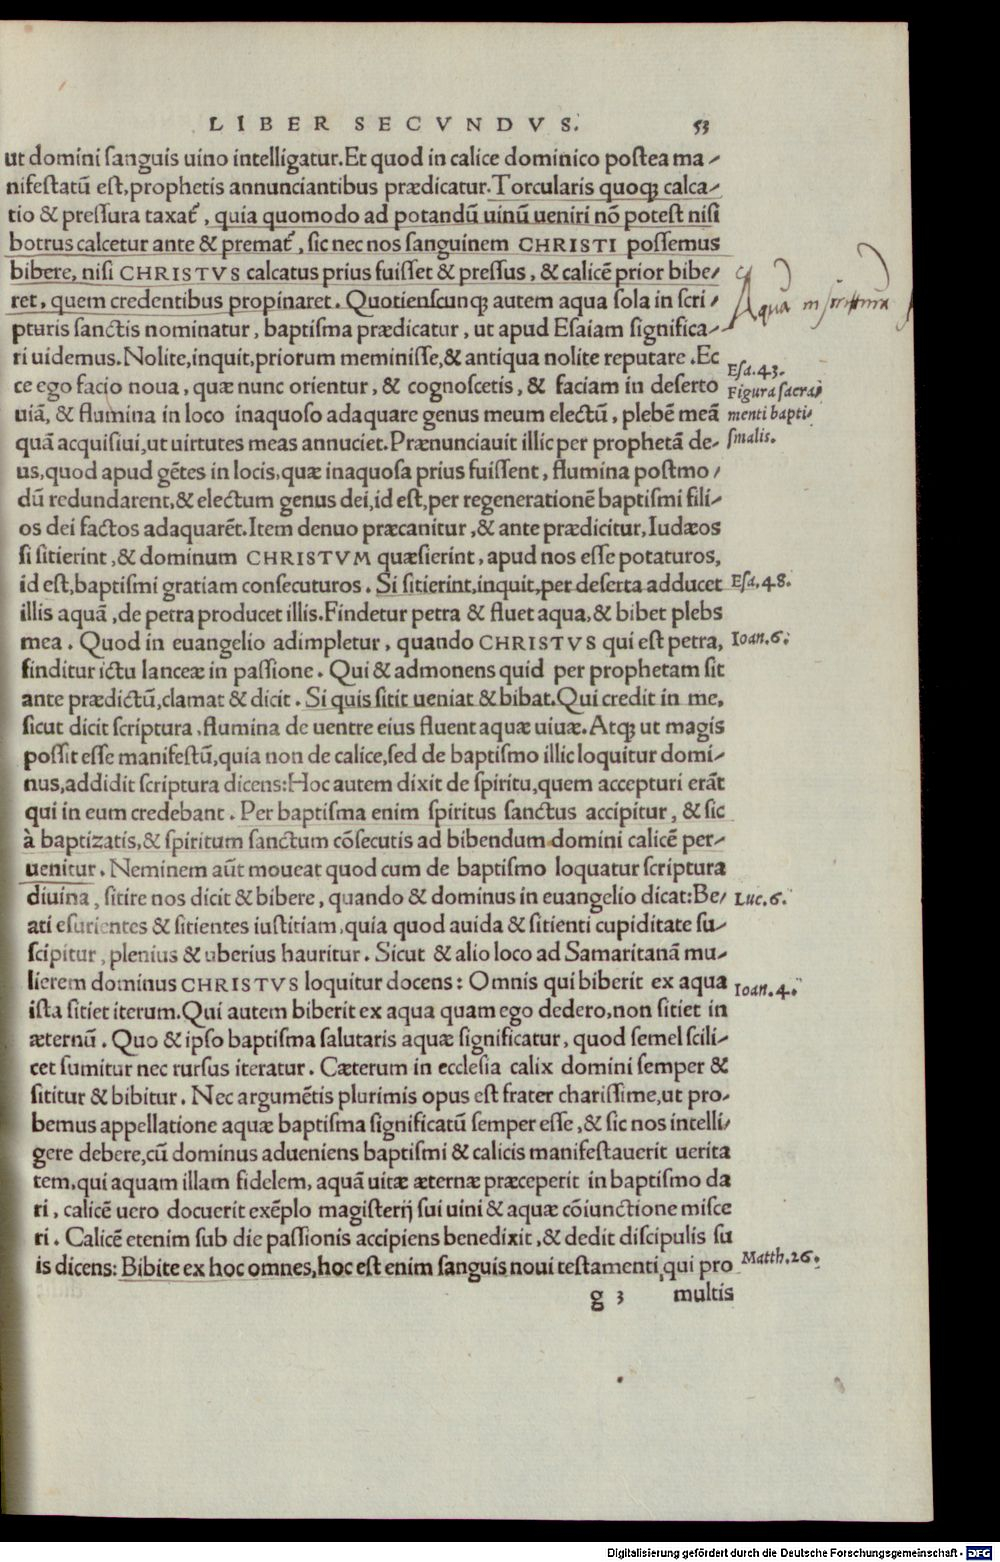 LIBER SECVNDVS. 53
ut domini sanguis uino intelligatur. Et quod in calice dominico postea ma-
nifestatũ est, prophetis annunciantibus prædicatur. Torcularis quoq; calca-
tio & pressura taxat᷑, quia quomodo ad potandũ uinũ ueniri nõ potest nisi
botrus calcetur ante & premat᷑, sic nec nos sanguinem CHRISTI possemus
bibere, nisi CHRISTVS calcatus prius fuisset & pressus, & calicẽ prior bibe-
ret, quem credentibus propinaret. Quotienscunq; autem aqua sola in scri-
Aqua in scriptura
pturis sanctis nominatur, baptisma prædicatur, ut apud Esaiam significa-
ri uidemus. Nolite, inquit, priorum meminisse, & antiqua nolite reputare. Ec
Esa. 43.
ce ego facio noua, quæ nunc orientur, & cognoscetis, & faciam in deserto
Figura sacra-
uiã, & flumina in loco inaquoso adaquare genus meum electũ, plebẽ meã
menti bapti-
quã acquisiui, ut uirtutes meas annuciet. Prænunciauit illic per prophetã de-
smalis.
us, quod apud gẽtes in locis, quæ inaquosa prius fuissent, flumina postmo-
dũ redundarent, & electum genus dei, id est, per regenerationẽ baptismi fili-
os dei factos adaquarẽt. Item denuo præcanitur, & ante prædicitur, Iudæos
si sitierint, & dominum CHRISTVM quæsierint, apud nos esse potaturos,
id est, baptismi gratiam consecuturos. Si sitierint, inquit, per deserta adducet
Esa. 48.
illis aquã, de petra producet illis. Findetur petra & fluet aqua, & bibet plebs
mea. Quod in euangelio adimpletur, quando CHRISTVS qui est petra,
Ioan. 6.
finditur ictu lanceæ in passione. Qui & admonens quid per prophetam sit
ante prædictũ, clamat & dicit. Si quis sitit ueniat & bibat. Qui credit in me,
sicut dicit scriptura, flumina de uentre eius fluent aquæ uiuæ. Atq; ut magis
possit esse manifestũ, quia non de calice, sed de baptismo illic loquitur domi-
nus, addidit scriptura dicens: Hoc autem dixit de spiritu, quem accepturi erãt
qui in eum credebant. Per baptisma enim spiritus sanctus accipitur, & sic
à baptizatis, & spiritum sanctum cõsecutis ad bibendum domini calicẽ per-
uenitur. Neminem aũt moueat quod cum de baptismo loquatur scriptura
diuina, sitire nos dicit & bibere, quando & dominus in euangelio dicat: Be-
Luc. 6.
ati esurientes & sitientes iustitiam, quia quod auida & sitienti cupiditate su-
scipitur, plenius & uberius hauritur. Sicut & alio loco ad Samaritanã mu-
lierem dominus CHRISTVS loquitur docens: Omnis qui biberit ex aqua
Ioan. 4.
ista sitiet iterum. Qui autem biberit ex aqua quam ego dedero, non sitiet in
æternũ. Quo & ipso baptisma salutaris aquæ significatur, quod semel scili-
cet sumitur nec rursus iteratur. Cæterum in ecclesia calix domini semper &
sititur & bibitur. Nec argumẽtis plurimis opus est frater charissime, ut pro-
bemus appellatione aquæ baptisma significatũ semper esse, & sic nos intelli-
gere debere, cũ dominus adueniens baptismi & calicis manifestauerit uerita
tem, qui aquam illam fidelem, aquã uitæ æternæ præceperit in baptismo da
ri, calicẽ uero docuerit exẽplo magisterij sui uini & aquæ cõiunctione misce
ri. Calicẽ etenim sub die passionis accipiens benedixit, & dedit discipulis su
is dicens: Bibite ex hoc omnes, hoc est enim sanguis noui testamenti, qui pro
Matth. 26.
g 3 multis
Digitalisierung gefördert durch die Deutsche Forschungsgemeinschaft - DFG